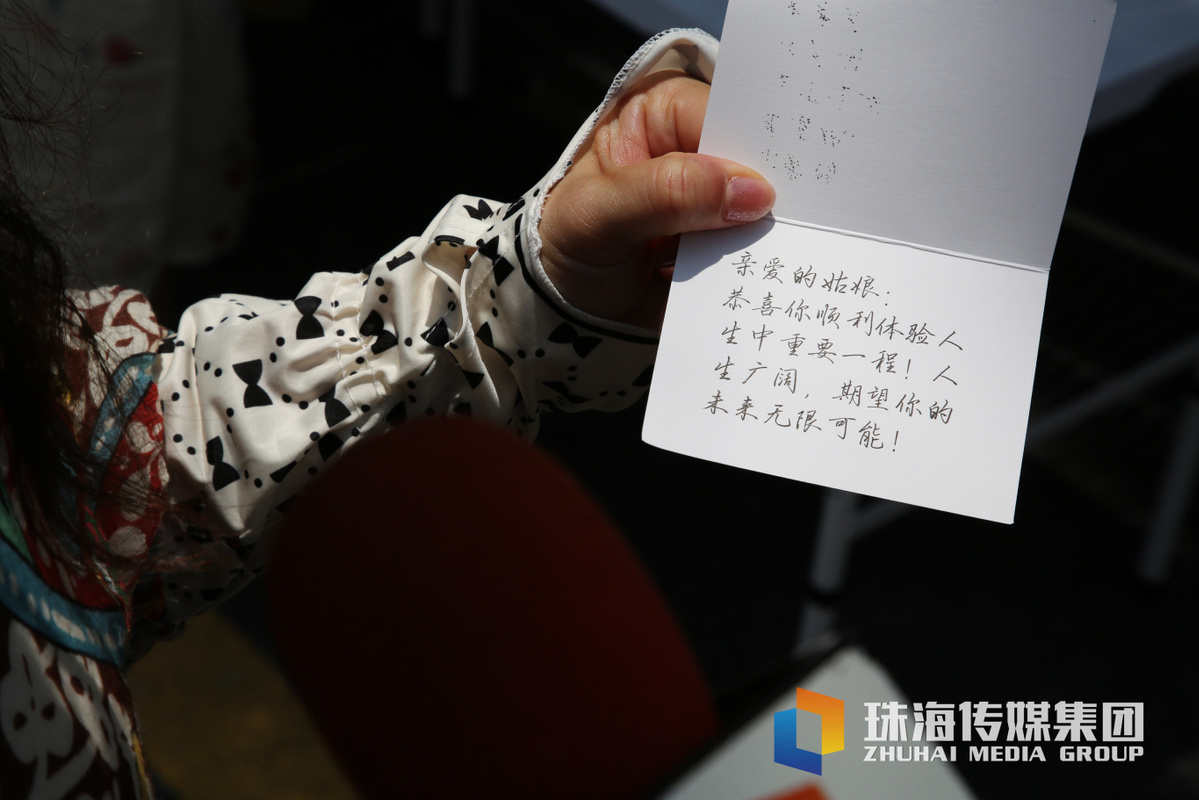 亲爱的姑娘:
恭喜你顺利体验人
生中重要一程!人
生广阔,期望你的
未来无限可能!
珠海传媒集团
ZHUHAI MEDIA GROUP